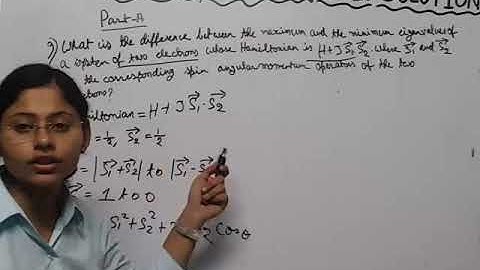 SOLUTION
Part-A
9) What is the difference between the maximum and the minimum eigenvalues of
a system of two electrons whose Hamiltonian is H+J S⃗1.S⃗2 where S⃗1 and S⃗2
the corresponding spin angularmomentum operators of the two
= H+J S⃗1.S⃗2
= 1/2, S⃗2 = 1/2
= |S⃗1+S⃗2| to |S⃗1-
= 1 to 0
S1²+S2²+ Cosθ